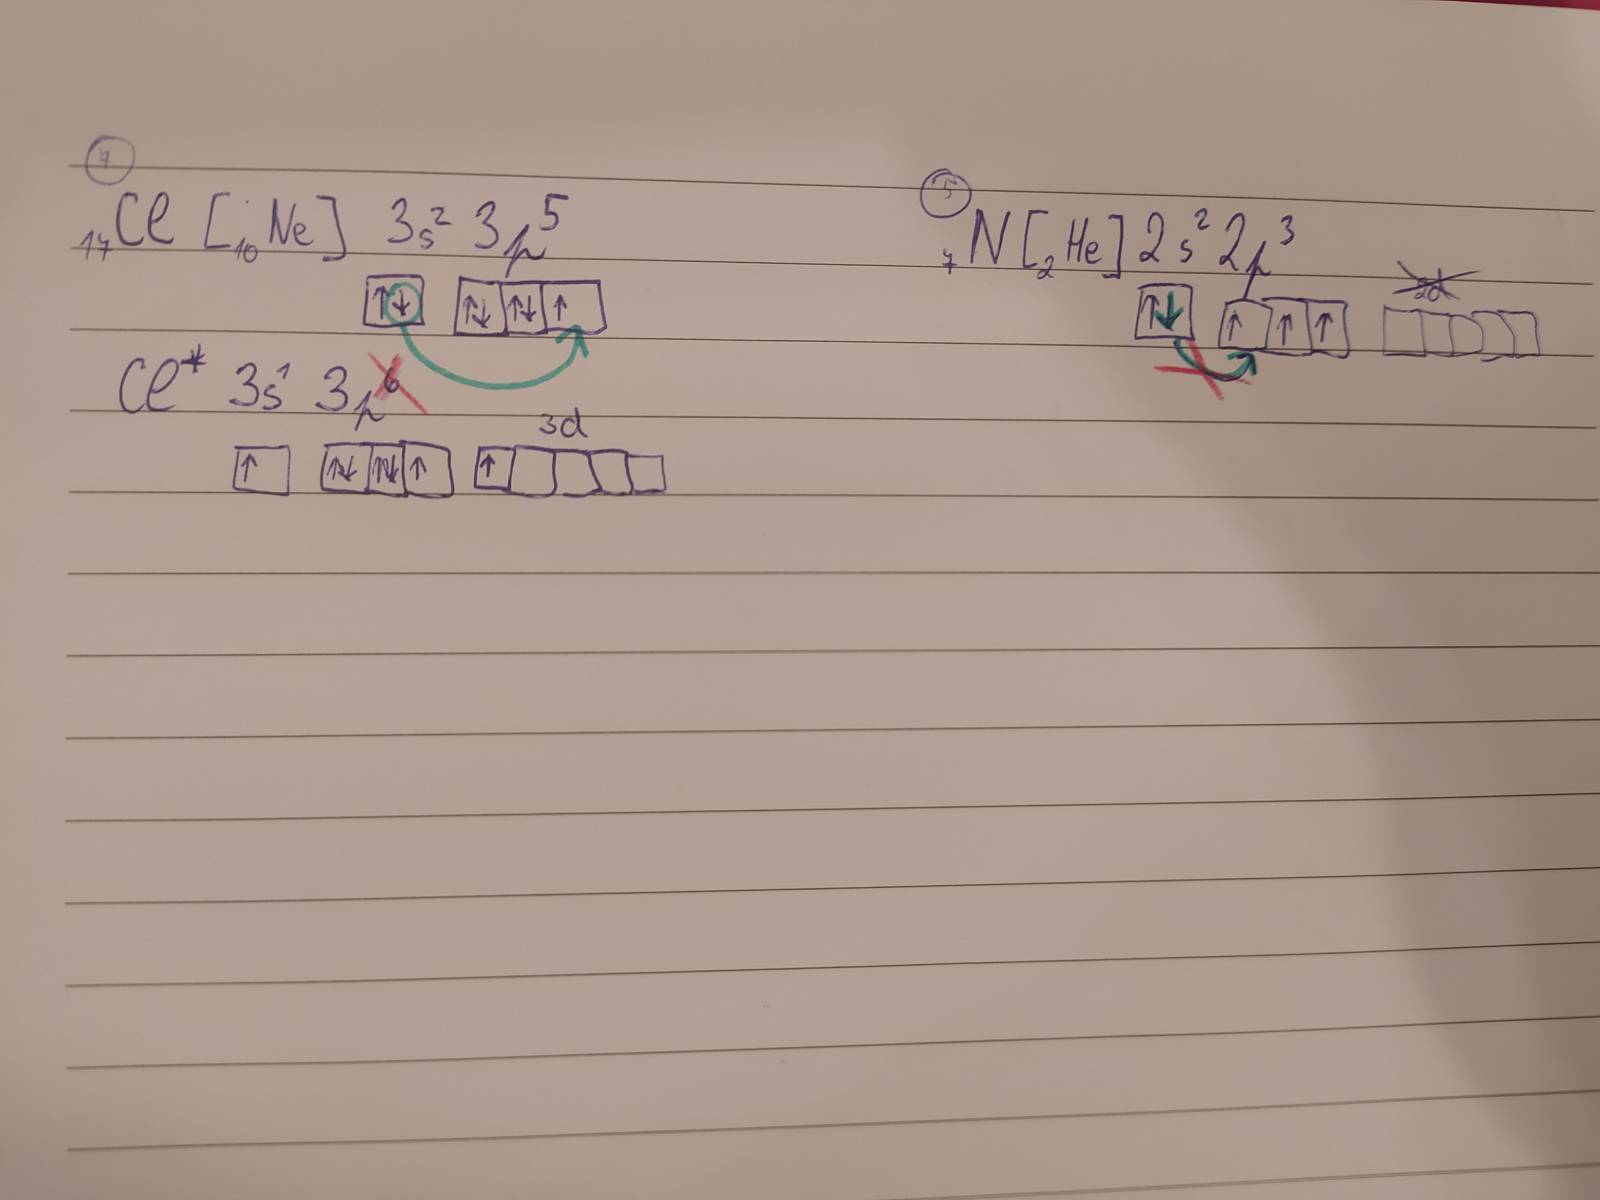 7
17Cl [10Ne] 3s² 3p⁵
↑↓ ↑↓ ↑↓ ↑
Cl* 3s¹ 3p⁶
3d
↑ ↑↓ ↑↓ ↑ ↑
5
7N [2He] 2s² 2p³
2d
↑↓ ↑ ↑ ↑